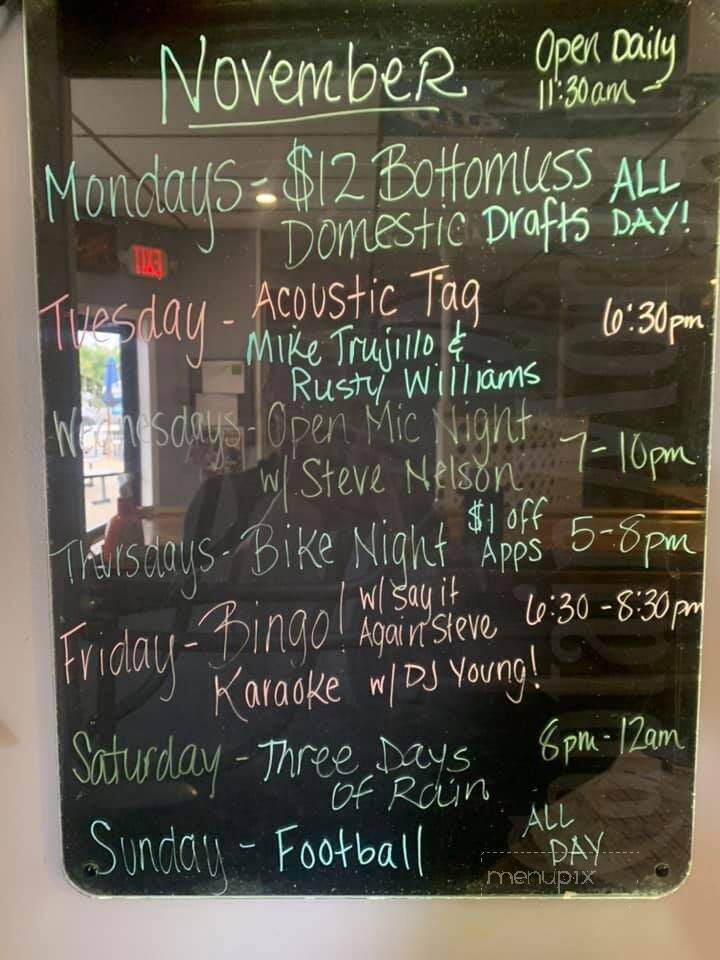 November
Open Daily
11:30am -
Mondays - $12 Bottomless ALL
Domestic Drafts DAY!
EXIT
Tuesday - Acoustic Tag 6:30pm
Mike Trujillo &
Rusty Williams
Wednesdays - Open Mic Night 7-10pm
w/ Steve Nelson
Thursdays - Bike Night $1 off 5-8pm
Apps
Friday - Bingo! w/ say it 6:30-8:30pm
Again Steve
Karaoke w/ DJ Young!
Saturday - Three Days 8pm-12am
of Rain
Sunday - Football ALL
DAY
menupix